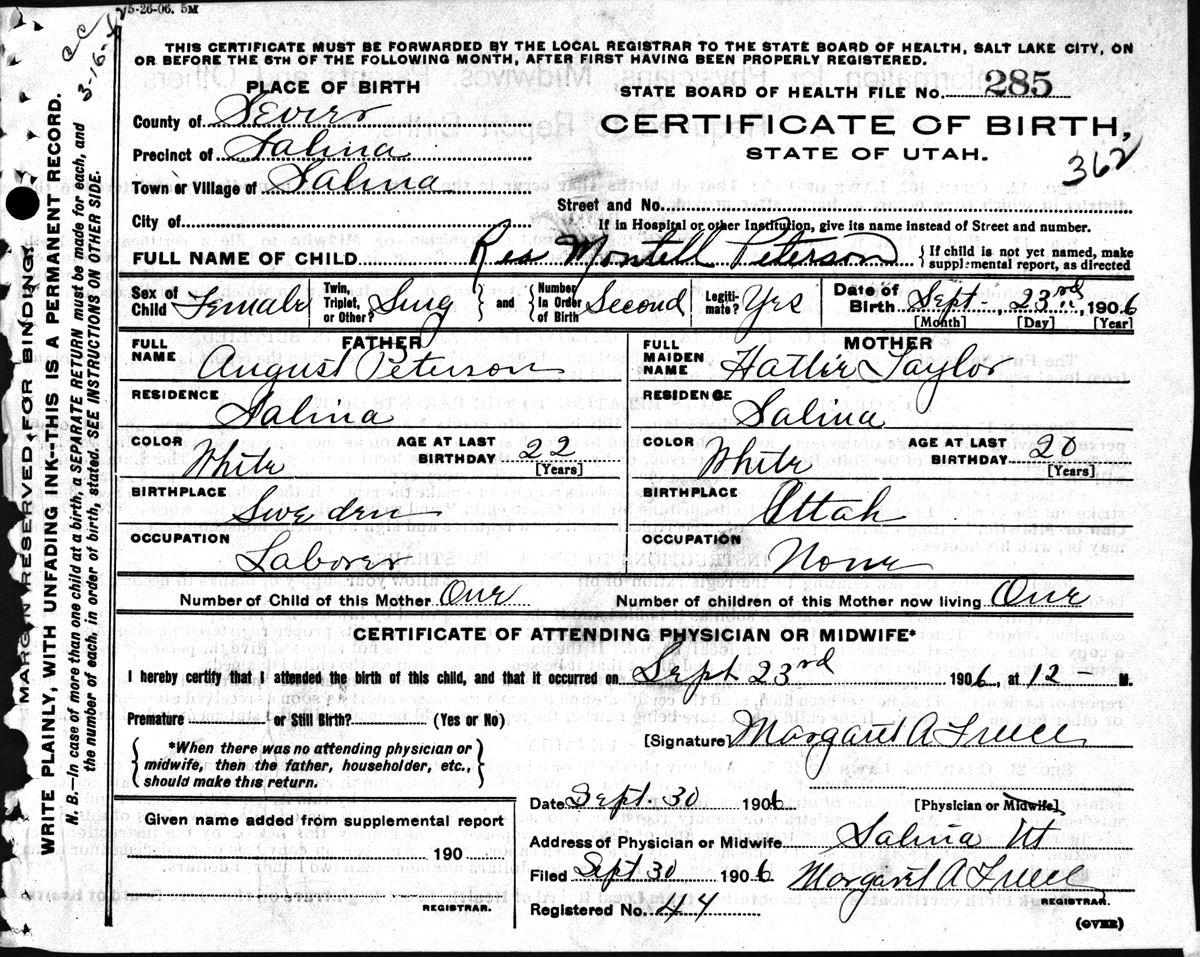 5-26-06. 5M
C C
3-16-
THIS CERTIFICATE MUST BE FORWARDED BY THE LOCAL REGISTRAR TO THE STATE BOARD OF HEALTH, SALT LAKE CITY, ON
OR BEFORE THE 5TH OF THE FOLLOWING MONTH, AFTER FIRST HAVING BEEN PROPERLY REGISTERED.
PLACE OF BIRTH
STATE BOARD OF HEALTH FILE No. 285
County of Sevier
CERTIFICATE OF BIRTH,
Precinct of Salina
STATE OF UTAH.
362
Town or Village of Salina
Street and No.
City of
If in Hospital or other Institution, give its name instead of Street and number.
FULL NAME OF CHILD Rea Montell Peterson { If child is not yet named, make supplemental report, as directed
Sex of Child Female Twin, Triplet, or Other? Sing } and { Number in Order of Birth Second Legiti-mate? Yes Date of Birth Sept. 23rd, 1906
[Month] [Day] [Year]
FATHER
MOTHER
FULL NAME August Peterson
FULL MAIDEN NAME Hattie Taylor
RESIDENCE Salina
RESIDENCE Salina
COLOR White AGE AT LAST BIRTHDAY 22 [Years]
COLOR White AGE AT LAST BIRTHDAY 20 [Years]
BIRTHPLACE Sweden
BIRTHPLACE Uttah
OCCUPATION Laborer
OCCUPATION None
Number of Child of this Mother One
Number of children of this Mother now living One
CERTIFICATE OF ATTENDING PHYSICIAN OR MIDWIFE*
I hereby certify that I attended the birth of this child, and that it occurred on Sept 23rd 1906, at 12 – M.
Premature or Still Birth? (Yes or No)
{ *When there was no attending physician or
midwife, then the father, householder, etc.,
should make this return. }
[Signature] Margaret A Freece
Date Sept. 30 1906 [Physician or Midwife]
Given name added from supplemental report
190
REGISTRAR.
Address of Physician or Midwife Salina Ut
Filed Sept 30 1906 Margaret A Freece
REGISTRAR.
Registered No. 44
(OVER)
MARGIN RESERVED FOR BINDING.
WRITE PLAINLY, WITH UNFADING INK--THIS IS A PERMANENT RECORD.
N. B.—In case of more than one child at a birth, a SEPARATE RETURN must be made for each, and
the number of each, in order of birth, stated. SEE INSTRUCTIONS ON OTHER SIDE.